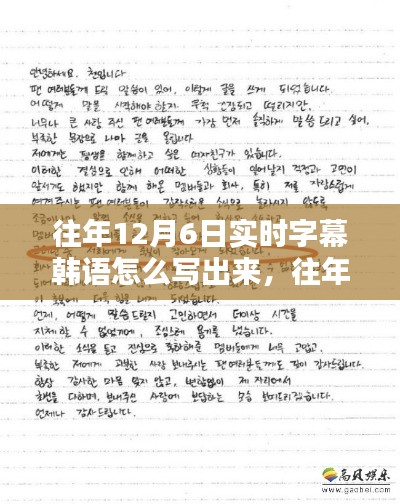 안녕하세요. 첸입니다
팬 여러분들께 드릴 말씀이 있어, 이렇게 글을 쓰게 되었습니다.
어떻게 말을 시작해야할지 무척 긴장되고 떨리지만,
너무나 큰 사랑 주신 팬 여러분들께 가장 먼저 솔직하게 말씀 드리고 싶어,
부족한 문장으로나마 글을 올립니다
저에게는 평생을 함께하고 싶은 여자친구가 있습니다.
이러한 결심으로 인해 어떠한 상황들이 일어날지 걱정과 고민이
앞서기도 했지만 함께 해온 멤버들과 회사, 특히 저를
往年12月6日实时字幕
韩语怎么写出来，往年
언제, 어떻게 말씀 드릴지 고민하면서 더이상 시간을
지체할 수 없었기에, 조심스레 용기를 냈습니다.
이러한 소식을 듣고 진심으로 축하해준 멤버들에게 너무 고맙고,
부족한 저에게 과분한 사랑 보내주시는 팬 여러분들께도 깊이 감사드립니다.
항상 감사한 마음 잊지 않고, 변함없이 제 자리에서
최선을 다하며, 보내주신 사랑에 보답하는 모습 보여드리겠습니다.
언제나 감사드립니다.
高风娱乐
www.gaobei.com